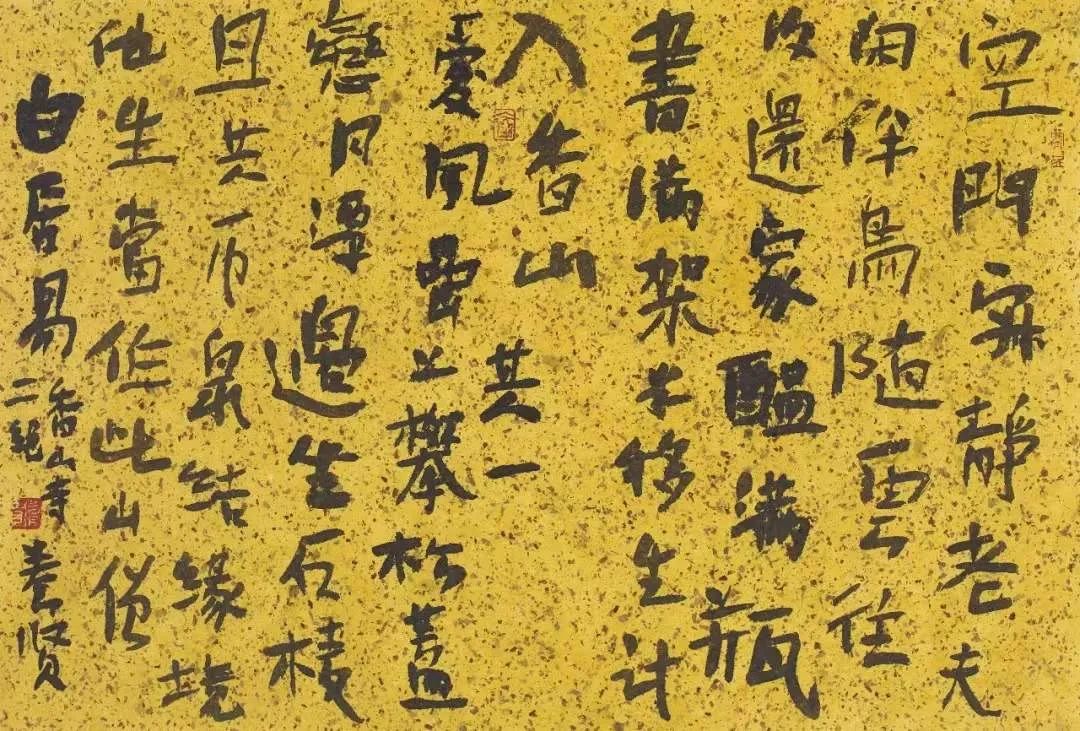 空門寂靜老夫
閑伴鳥随雲往
复還家醞滿瓶
書滿架半移生计
入香山 其一
愛風岩上攀松蓋
戀月潭邊坐石棱
且共雲泉结缘境
他生當作此山僧
白居易香山寺二絶